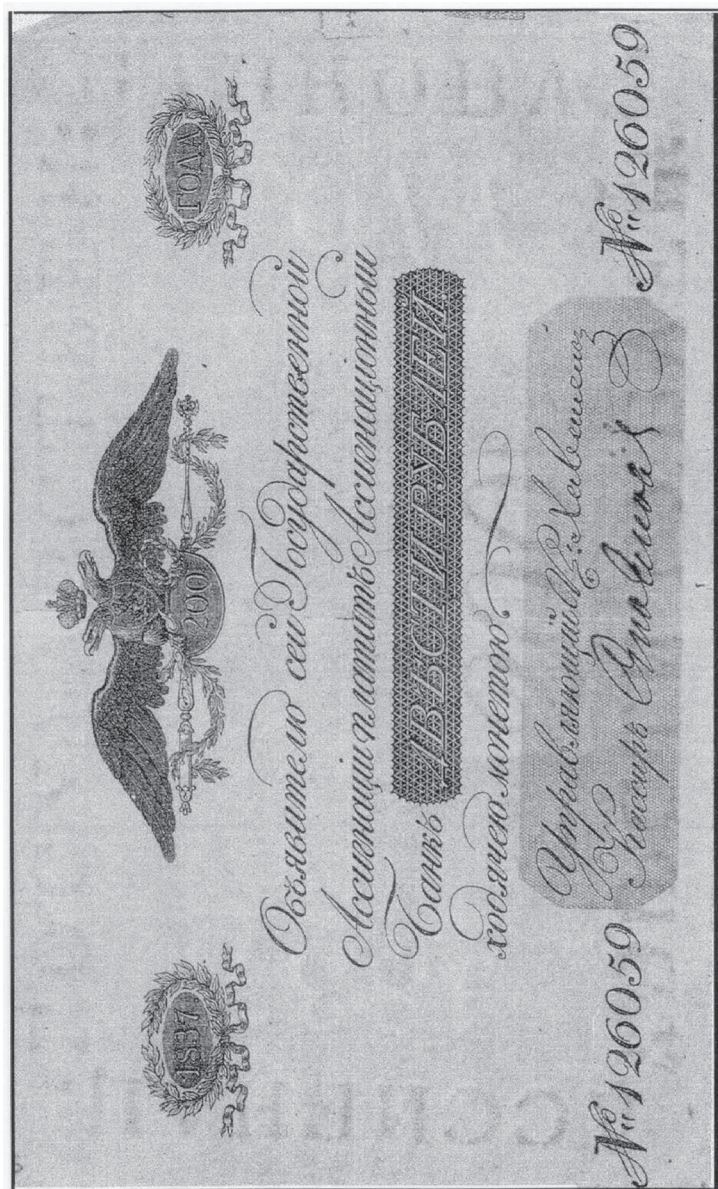 1837 ГОДА
200
Объявителю сей Государственной
Ассигнаціи платитъ Ассигнаціонный
Банкъ ДВѢСТИ РУБЛЕЙ.
ходячею монетою
Управляющій
Кассиръ
№ 126059 № 126059